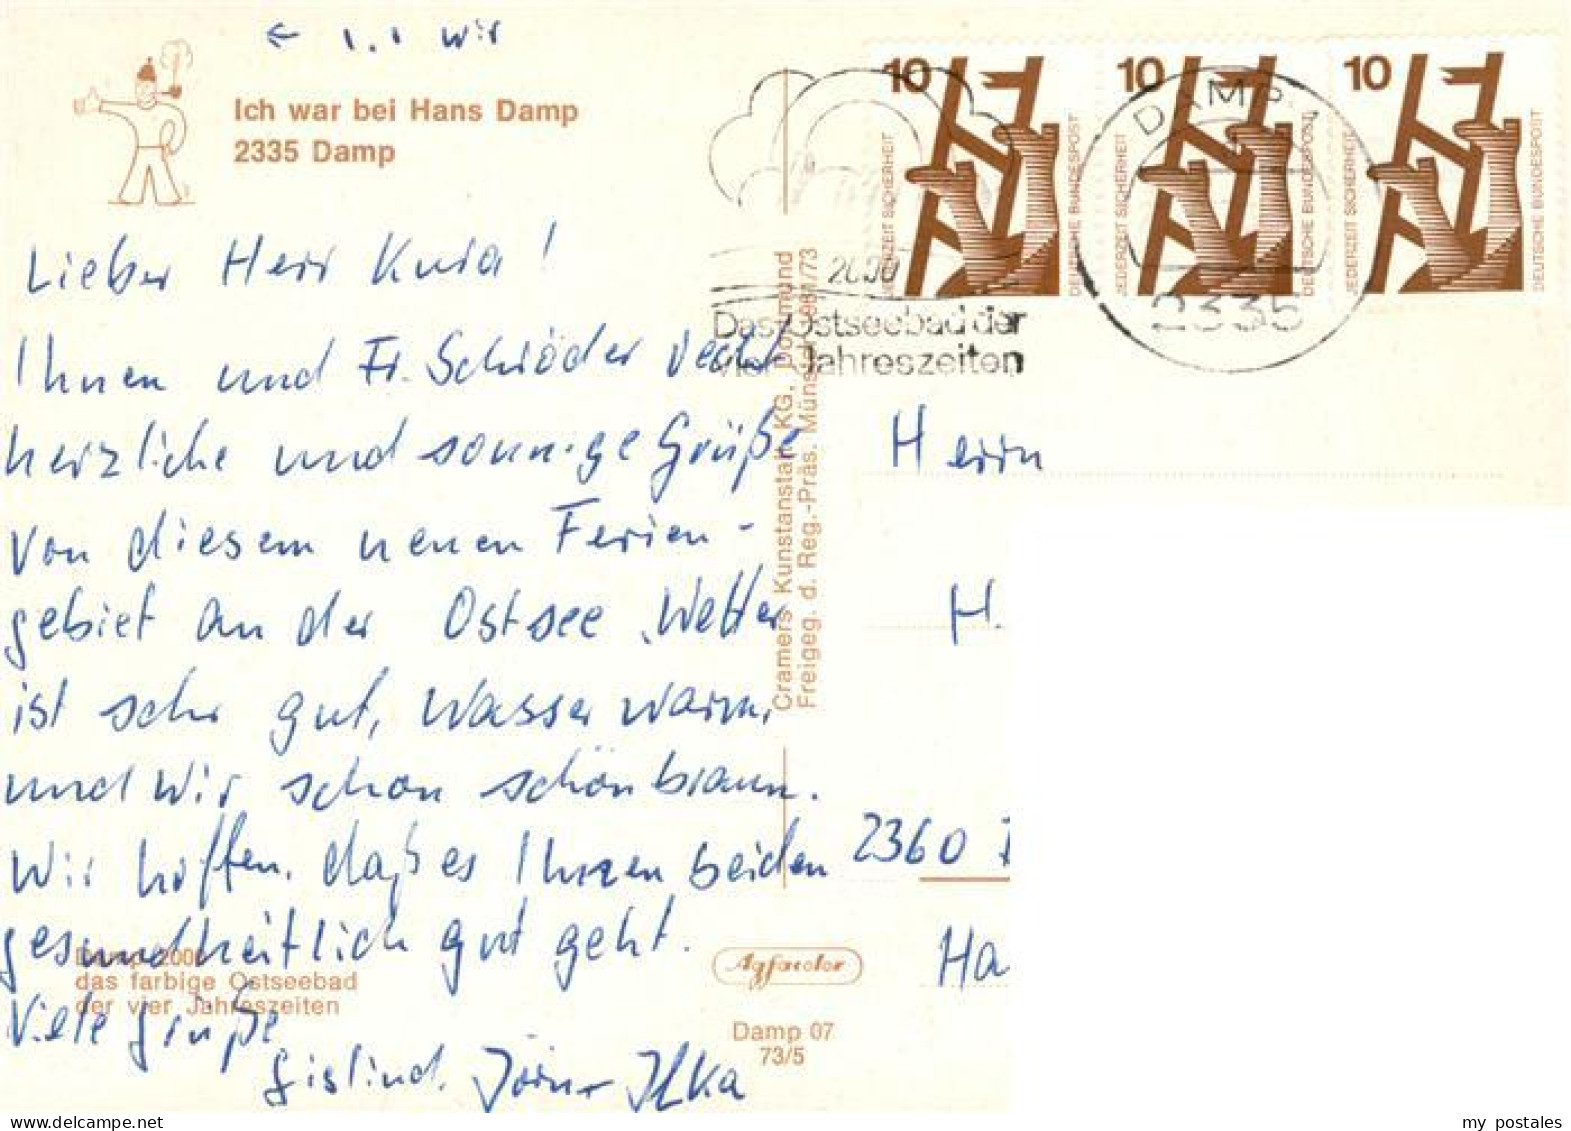 ← 1.1 wir
Ich war bei Hans Damp
2335 Damp
10 10 10
JEDERZEIT SICHERHEIT DEUTSCHE BUNDESPOST
JEDERZEIT SICHERHEIT DEUTSCHE BUNDESPOST
JEDERZEIT SICHERHEIT DEUTSCHE BUNDESPOST
DAMP 1
2335
2000
Das Ostseebad der
vier Jahreszeiten
Lieber Herr Knia!
Ihnen und Fr. Schröder recht
herzliche und sonnige Grüße
von diesem neuen Ferien-
gebiet an der Ostsee. Wetter
ist sehr gut, Wasser warm,
und wir schon schön braun.
Wir hoffen, daß es Ihnen beiden
gesundheitlich gut geht.
Viele Grüße
Gislind, Jörn + Ilka
Damp 2000
das farbige Ostseebad
der vier Jahreszeiten
Cramers Kunstanstalt KG, Dortmund
Freigeg. d. Reg.-Präs. Münster
Agfacolor
Damp 07
73/5
Herrn
H.
2360
Ha
my postales